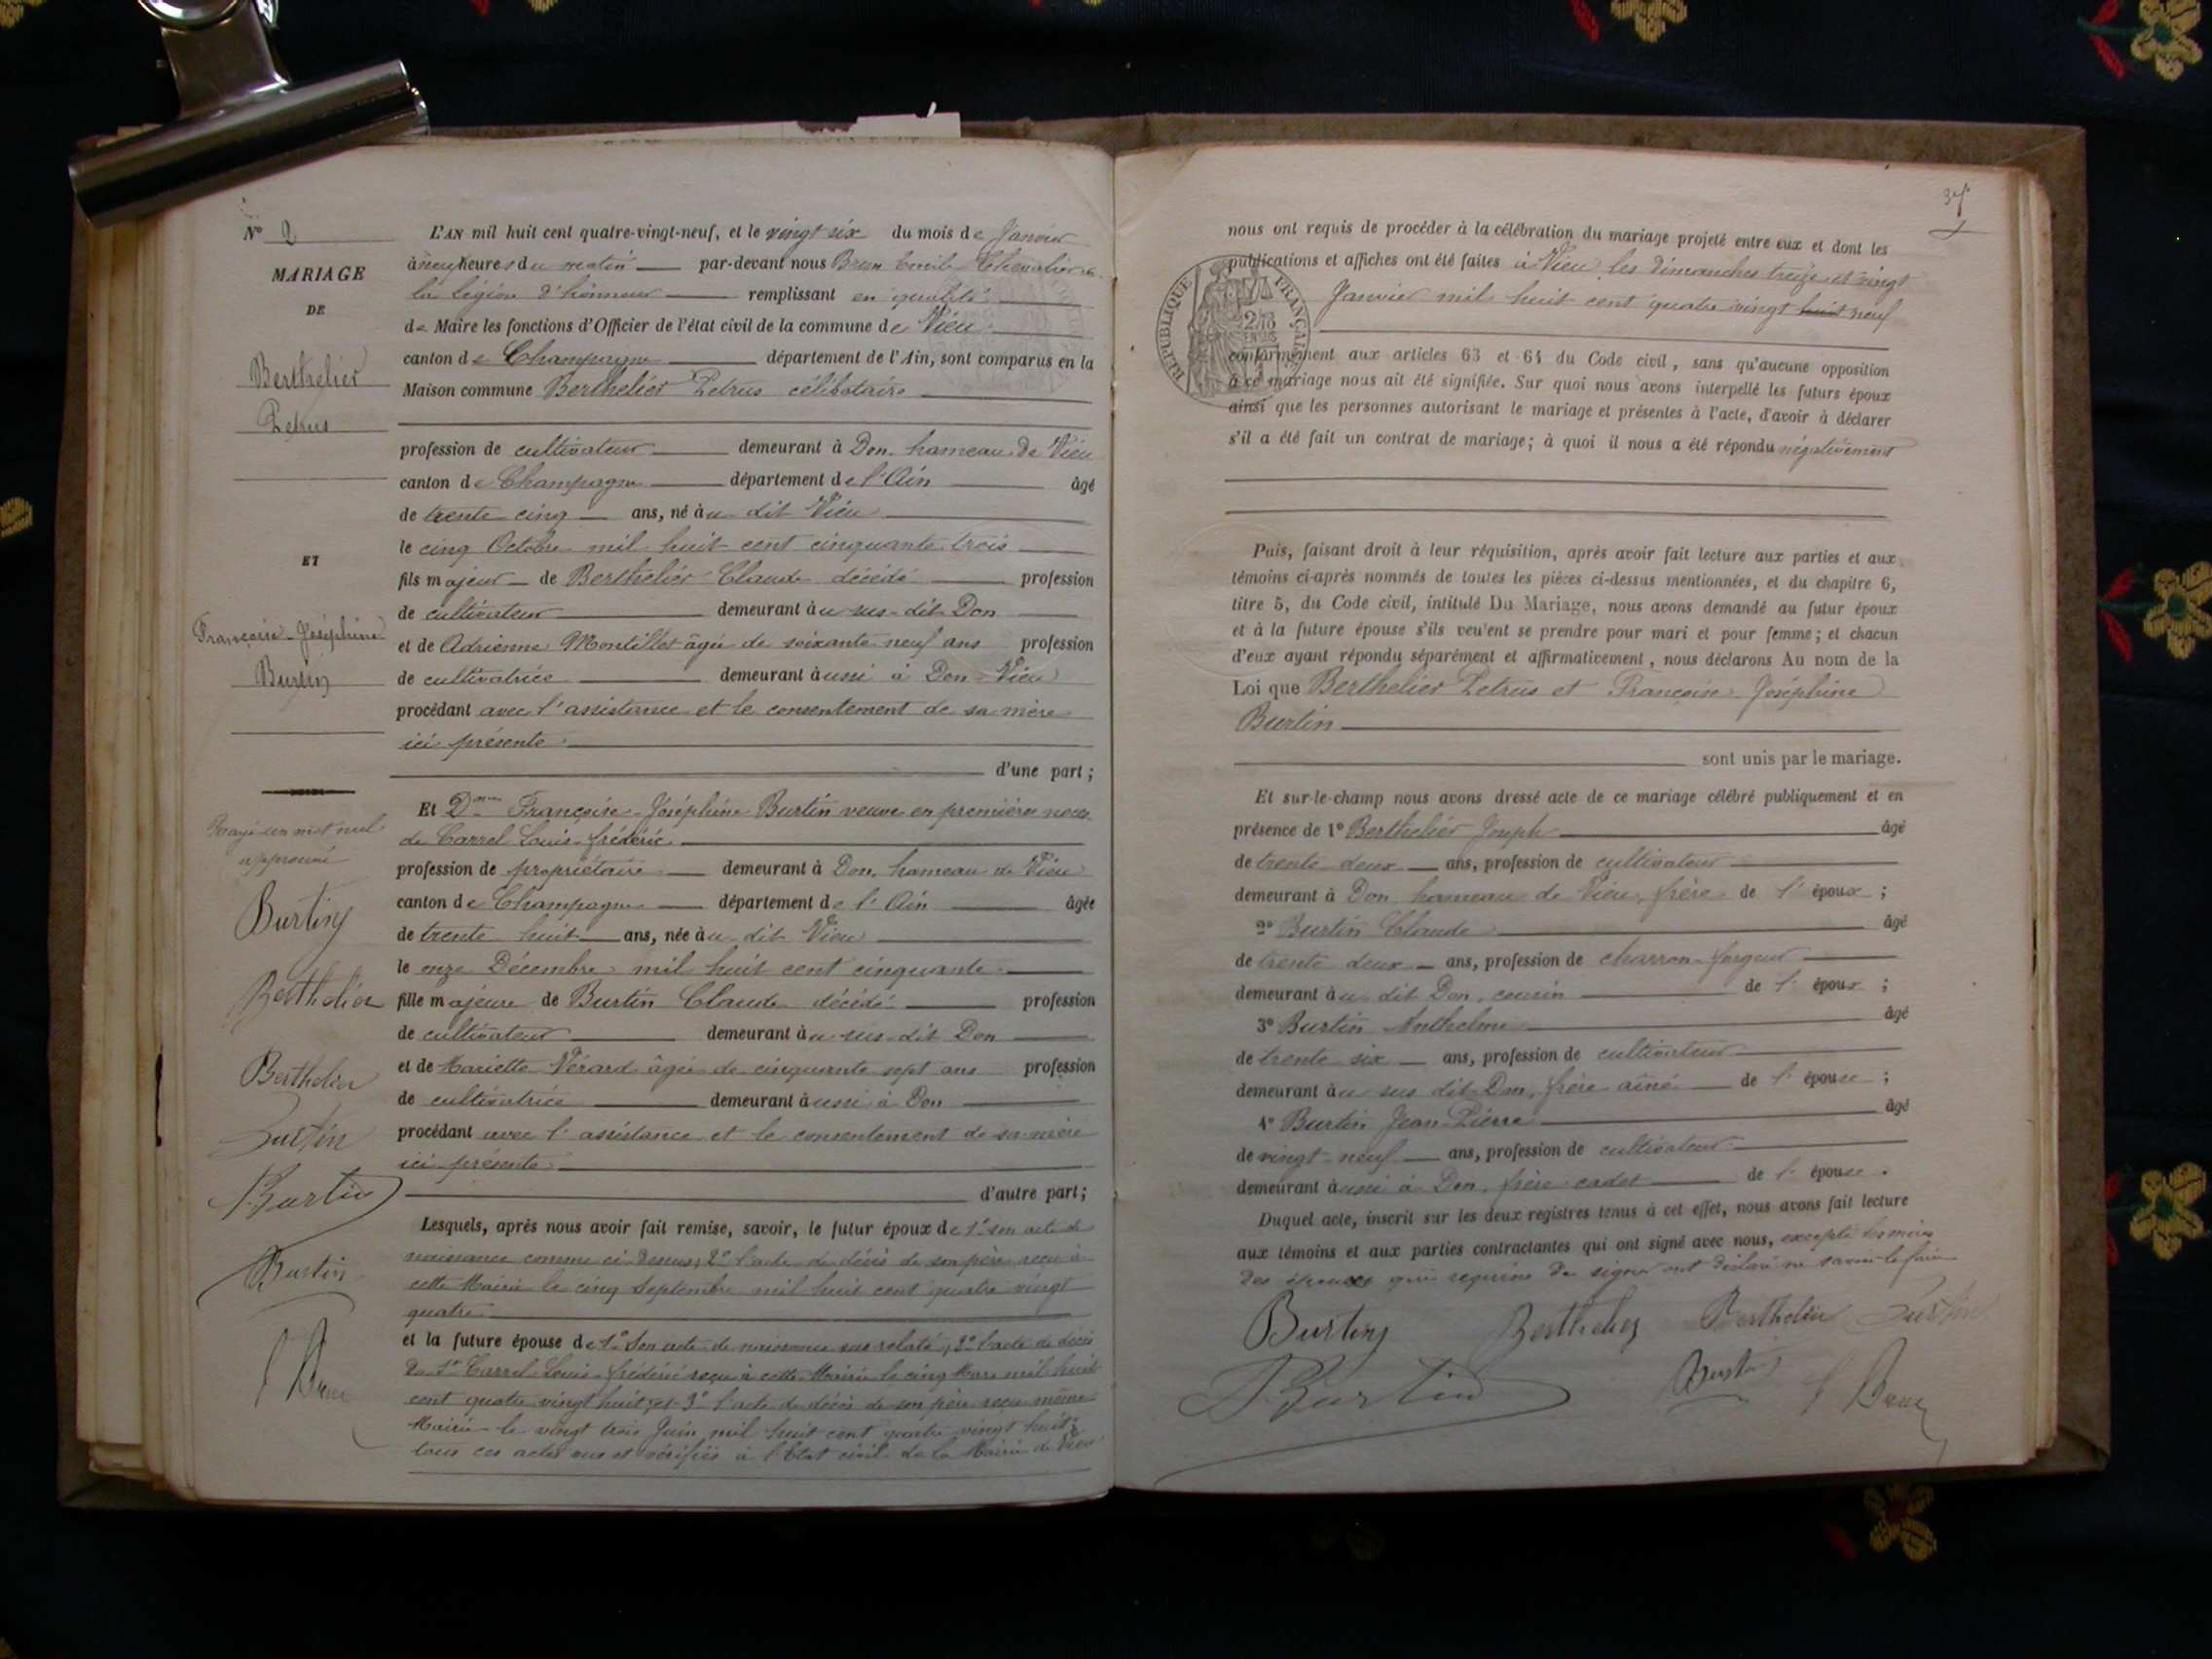 N° 2
MARIAGE
DE
Berthelier
Petrus
ET
Françoise-Joséphine
Burtin
Rayé un mot nul
approuvé
Burtin
Berthelier
Berthelier
Burtin
Burtin
Burtin
L'AN mil huit cent quatre-vingt-neuf, et le vingt six du mois de Janvier
à neuf heures du matin par-devant nous Brun Emile Chevalier de
la légion d'honneur remplissant en qualité
de Maire les fonctions d'Officier de l'état civil de la commune de Vieu
canton de Champagne département de l'Ain, sont comparus en la
Maison commune Berthelier Petrus célibataire
profession de cultivateur demeurant à Don, hameau de Vieu
canton de Champagne département de l'Ain âgé
de trente cinq ans, né au dit Vieu
le cinq Octobre mil huit cent cinquante trois
fils majeur de Berthelier Claude décédé profession
de cultivateur demeurant au sus-dit Don
et de Adrienne Montillet âgée de soixante neuf ans profession
de cultivatrice demeurant aussi à Don-Vieu
procédant avec l'assistance et le consentement de sa mère
ici présente
d'une part;
Et Dme Françoise-Joséphine Burtin veuve en premières noces
de Carrel Louis-frédéric
profession de propriétaire demeurant à Don, hameau de Vieu
canton de Champagne département de l'Ain âgée
de trente huit ans, née au dit Vieu
le onze Décembre mil huit cent cinquante
fille majeure de Burtin Claude décédé profession
de cultivateur demeurant au sus-dit Don
et de Mariette Vérard âgée de cinquante sept ans profession
de cultivatrice demeurant aussi à Don
procédant avec l'assistance et le consentement de sa mère
ici présente
d'autre part;
Lesquels, après nous avoir fait remise, savoir, le futur époux de 1° son acte de
naissance comme ci-dessus, 2° l'acte de décès de son père reçu à
cette Mairie le cinq Septembre mil huit cent quatre vingt
quatre
et la future épouse de 1° Son acte de naissance sus relaté, 2° l'acte de décès
du Sr Carrel Louis-frédéric reçu à cette Mairie le cinq Mars mil huit
cent quatre vingt huit, et 3° l'acte de décès de son père reçu même
Mairie le vingt trois Juin mil huit cent quatre vingt huit;
tous ces actes vus et vérifiés à l'Etat civil de la Mairie de Vieu
37
RÉPUBLIQUE FRANÇAISE
nous ont requis de procéder à la célébration du mariage projeté entre eux et dont les
publications et affiches ont été faites à Vieu les dimanches treize et vingt
Janvier mil huit cent quatre vingt huit neuf
conformément aux articles 63 et 64 du Code civil, sans qu'aucune opposition
à ce mariage nous ait été signifiée. Sur quoi nous avons interpellé les futurs époux
ainsi que les personnes autorisant le mariage et présentes à l'acte, d'avoir à déclarer
s'il a été fait un contrat de mariage; à quoi il nous a été répondu négativement
Puis, faisant droit à leur réquisition, après avoir fait lecture aux parties et aux
témoins ci-après nommés de toutes les pièces ci-dessus mentionnées, et du chapitre 6,
titre 5, du Code civil, intitulé Du Mariage, nous avons demandé au futur époux
et à la future épouse s'ils veulent se prendre pour mari et pour femme; et chacun
d'eux ayant répondu séparément et affirmativement, nous déclarons Au nom de la
Loi que Berthelier Petrus et Françoise-Joséphine
Burtin
sont unis par le mariage.
Et sur-le-champ nous avons dressé acte de ce mariage célébré publiquement et en
présence de 1° Berthelier Joseph âgé
de trente deux ans, profession de cultivateur
demeurant à Don hameau de Vieu, frère de l'époux;
2° Burtin Claude âgé
de trente deux ans, profession de charron-forgeur
demeurant au dit Don, cousin de l'époux;
3° Burtin Anthelme âgé
de trente six ans, profession de cultivateur
demeurant au sus dit Don, frère aîné de l'épouse;
4° Burtin Jean-Pierre âgé
de vingt-neuf ans, profession de cultivateur
demeurant aussi à Don, frère cadet de l'épouse.
Duquel acte, inscrit sur les deux registres tenus à cet effet, nous avons fait lecture
aux témoins et aux parties contractantes qui ont signé avec nous, excepté les mères
des époux qui requises de signer ont déclaré ne savoir le faire
Burtin Berthelier Berthelier Burtin
Burtin Burtin E Brun